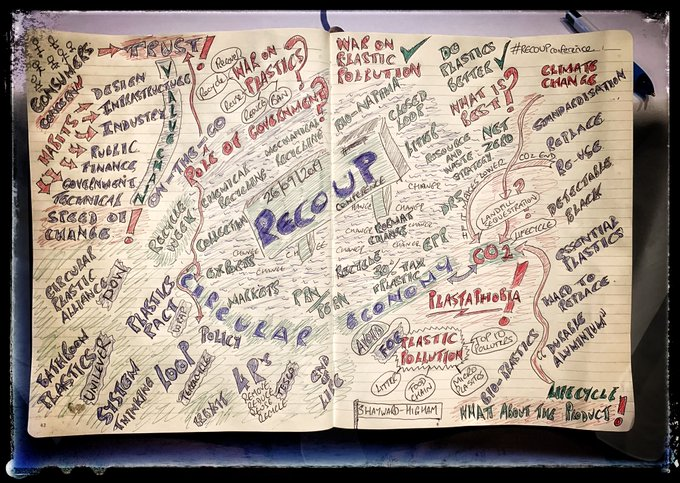 CONSUMERS
CONCERNS
HABITS
TRUST!
DESIGN
INFRASTRUCTURE
INDUSTRY
PUBLIC
FINANCE
GOVERNMENT
TECHNICAL
SPEED OF
CHANGE!
VALUE CHAIN
ON-THE-GO
RECYCLE
WEEK
WAR ON
PLASTICS?
ROLE OF GOVERNMENT?
Recycle
Reuse
BAN
MECHANICAL
RECYCLING
CHEMICAL
RECYCLING
COLLECTION
EXPORTS
MARKETS
26/9/2019
RECOUP
CONFERENCE
CHANGE
CHANGE
CHANGE
CHANGE
CHANGE
CHANGE
CHANGE
CHANGE
ROBUST
CHANGE
CIRCULAR
ECONOMY
CIRCULAR
PLASTIC
ALLIANCE
DOW
PLASTICS
PACT
WRAP
POLICY
BATHROOM
PLASTICS
UNILEVER
SYSTEM
THINKING
LOOP
TERRACYCLE
REDUCE
REUSE
RECYCLE
4 R's
TESCO
END OF
LIFE
WAR ON
PLASTIC
POLLUTION
DO
PLASTICS
BETTER
#RECOUPconference
WHAT IS
BEST?
CLIMATE
CHANGE
BIO-NAPTHA
CLOSED
LOOP
LITTER
RESOURCE
AND
WASTE
STRATEGY
NET
ZERO
DRS
EPR
RECYCLE
30%
TAX
PLASTIC
CO2 END
LANDFILL
SEQUESTRATION
?
LIFECYCLE
CO2
STANDARDISATION
REPLACE
RE-USE
DETECTABLE
BLACK
ESSENTIAL
PLASTICS
HARD TO
REPLACE
"DURABLE
ALUMINIUM"
PLASTAPHOBIA!
PLASTIC
POLLUTION
TOP 10
POLLUTERS
LITTER
FOOD
CHAIN
MICRO
PLASTICS
BIO-PLASTICS
LIFECYCLE
WHAT ABOUT THE PRODUCT!
BHAYWARD-HIGHAM
62